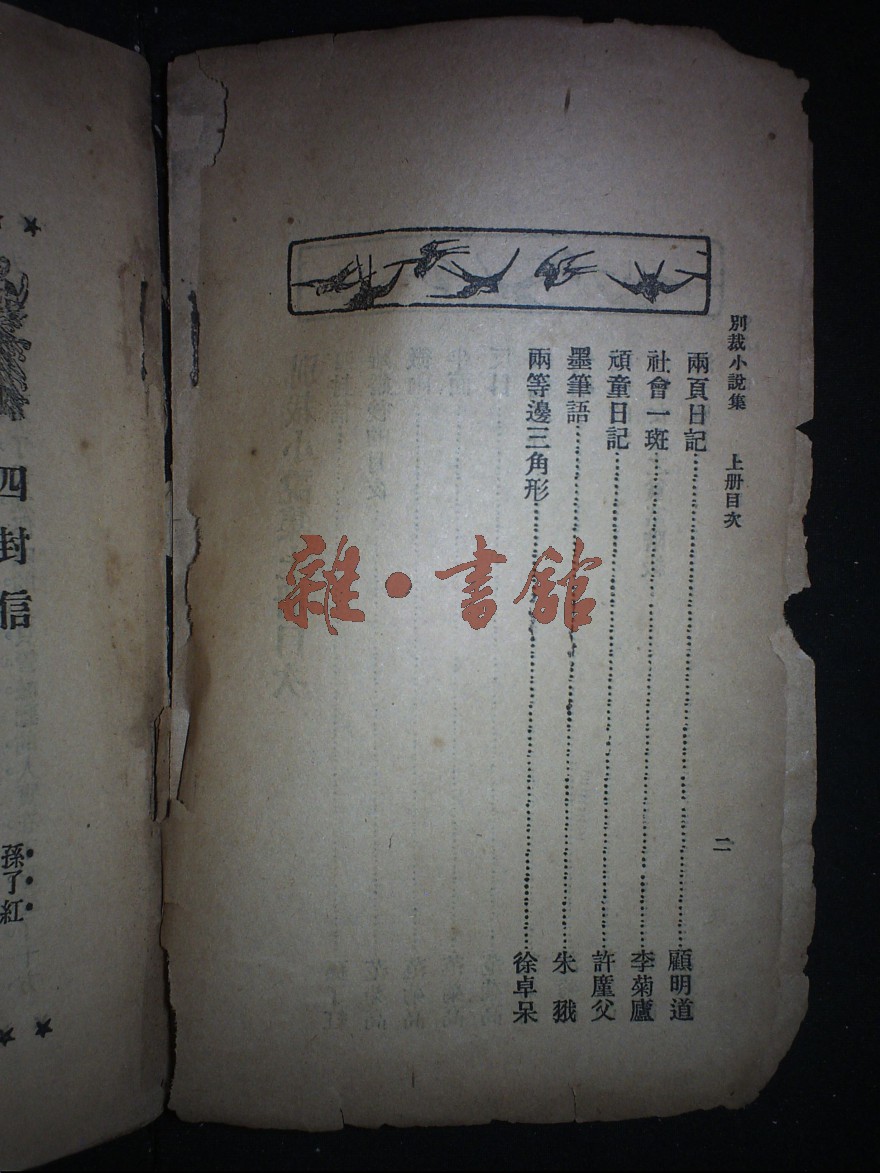 別裁小說集 上册目次
二
兩頁日記……顧明道
社會一斑……李菊廬
頑童日記……許廑父
墨筆語……朱 戩
兩等邊三角形……徐卓呆
雜·書館
四封信
孫了紅